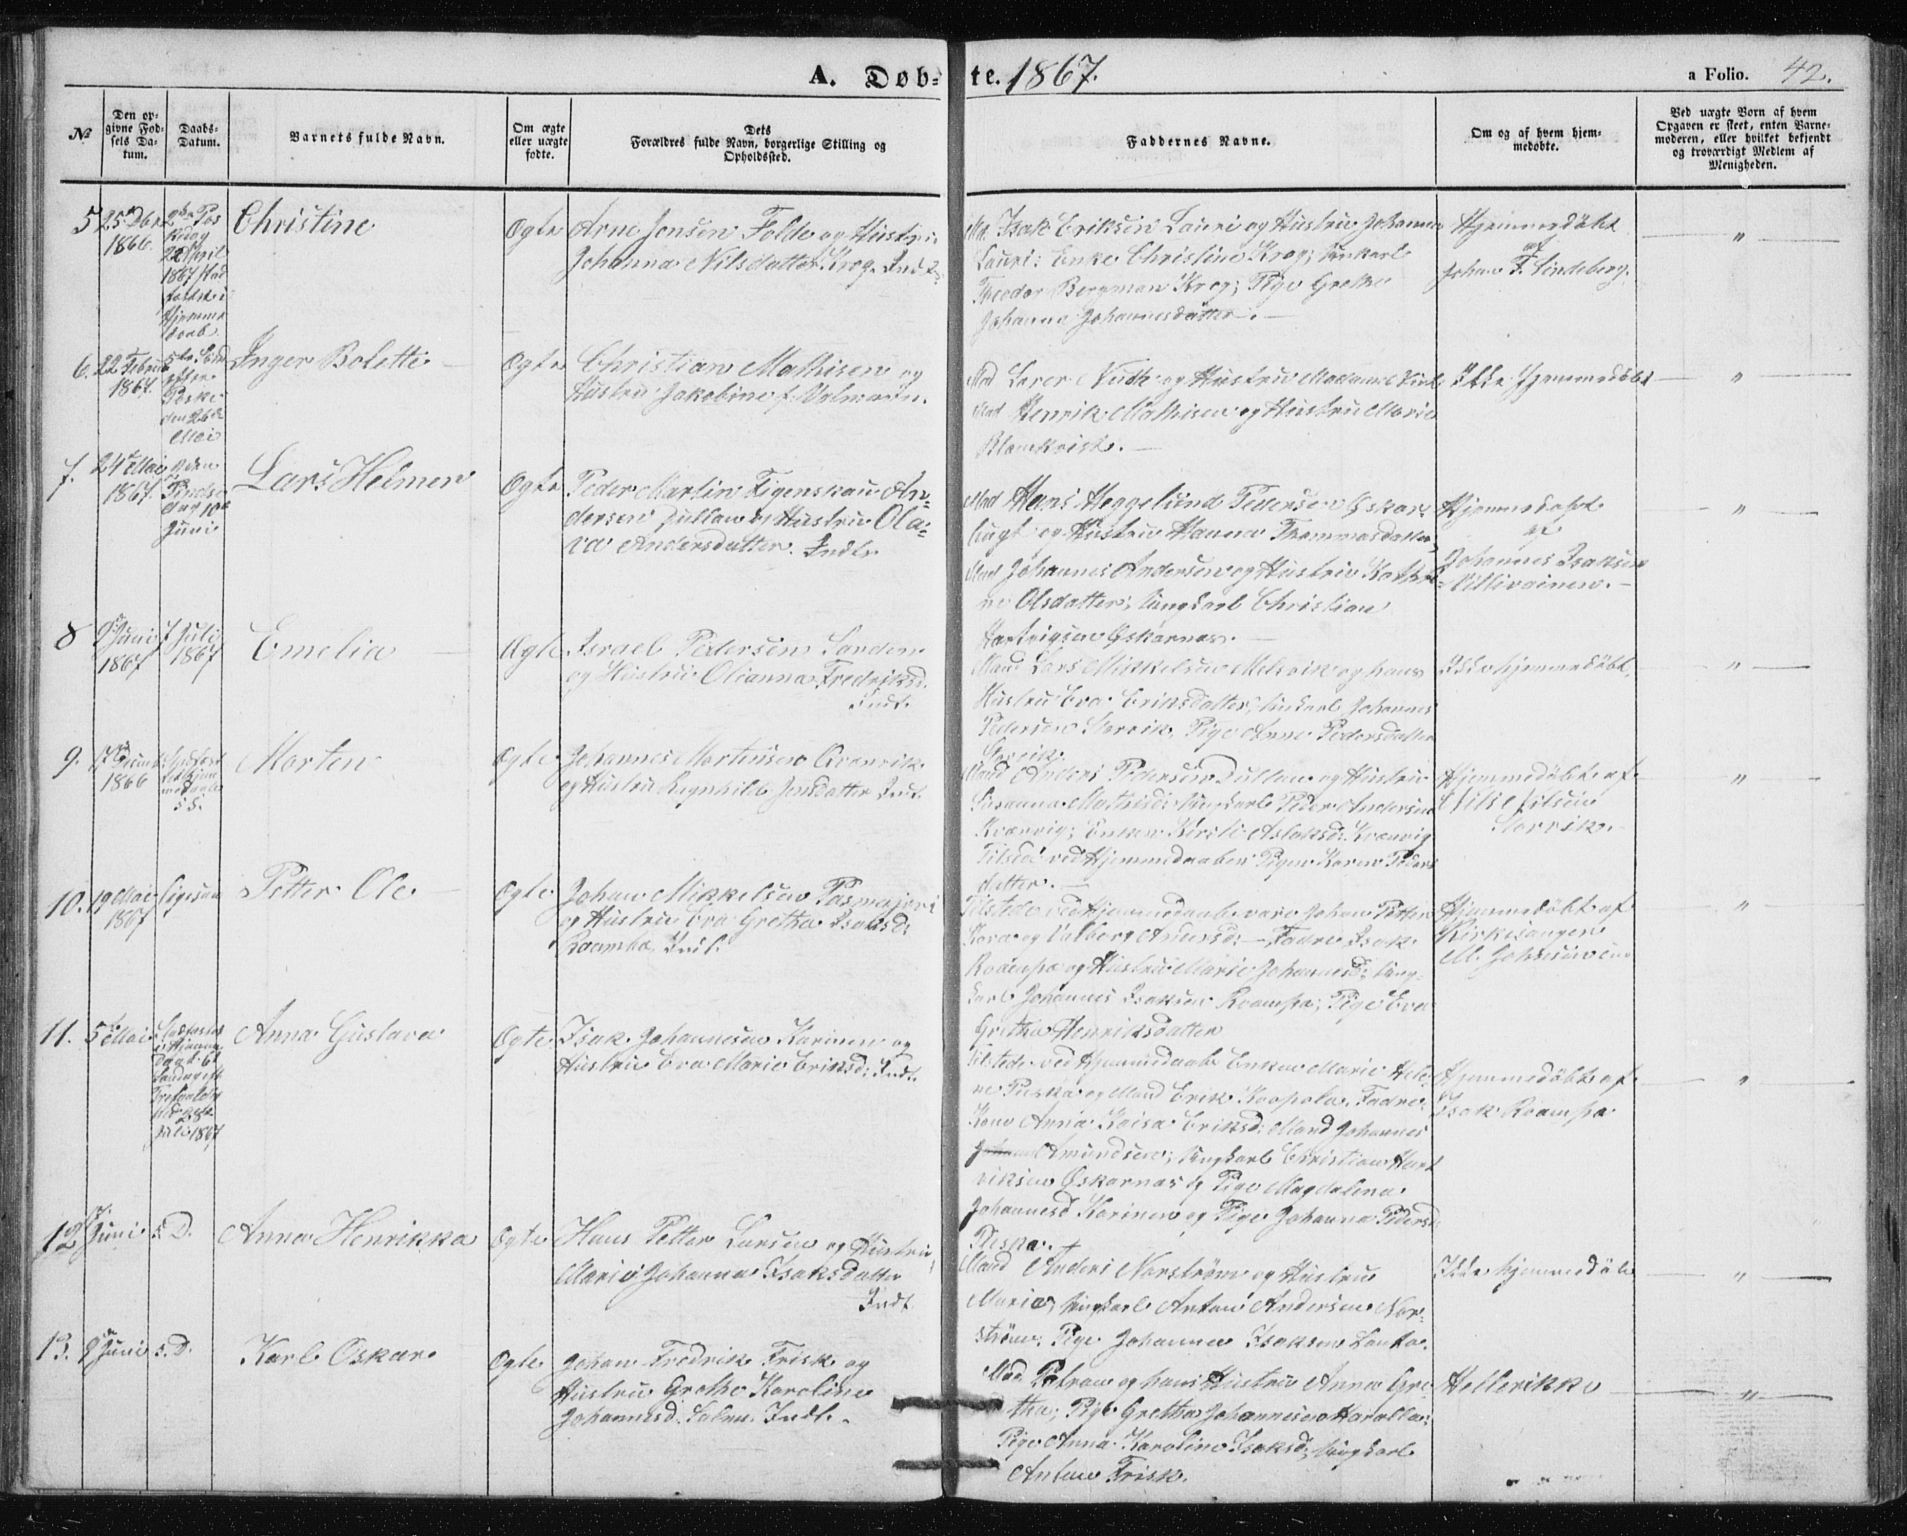 A. Døb-
te. 1867.
a Folio. 42.
№
Den op-
givne Fød-
sels Da-
tum.
Daabs-
Datum.
Barnets fulde Navn.
Om ægte
eller uægte
fødte.
Dets
Forældres fulde Navn, borgerlige Stilling og
Opholdssted.
Faddernes Navne.
Om og af hvem hjem-
medøbte.
Ved uægte Børn af hvem
Opgaven er skeet, enten Barne-
moderen, eller hvilket bekjendt
og troværdigt Medlem af
Menigheden.
5
1866.
2 April
1867 stad
fæstet i
Hjemme
daab
Christine
Ægte
Arne Jensen Folde og Hustru
Johanna Nilsdatter Krog. Indt.
Isak Eriksen Lauri og Hustru Johanna
Lauri: Enke Christine Krog; Ungkarl
Theodor Bergman Krog; Pige Grethe
Johanna Johannesdatter. —
Hjemmedøbt
af
Johan F. Lindeberg.
"
6.
22 Februar
1867.
5te Sønd
efter
Paaske
den 26de
Mai
Inger Bolette
Ægte
Christian Mathisen og
Hustru Jakobine f.
Mad
og Hustru Madame
Mad Henrik Mathisen og Hustru Marie
Blomkvist. —
Ikke Hjemmedøbt
"
7.
24de Mai
1867.
2den
Pindse
dag 10de
Juni
Lars Helmer
Ægte
Peder Martin Figenskau An-
dersen Dullau og Hustru Ola-
va Andersdatter. Indt.
Mad Hans Heggelund Pedersen Oskar-
bugt og Hustru Hanna Thommasdatter;
Mad Johannes Andersen og Hustru Kathri-
ne Olsdatter; Ungkarl Christian
Hartvigsen Oskarnæs. —
Hjemmedøbt
af
Johannes Isaksen
"
8
9 Juni
1867
7 Juli
1867
Emelia
Ægte
Israel Pedersen Sanden
og Hustru Olianna Fredriksd.
Indt.
Mand Lars Mikkelsen Melsvik og hans
Hustru Eva Eriksdatter, Ungkarl Johannes
Pedersen Storvik, Pige Anne Pedersdatter
Storvik.
Ikke hjemmedøbt.
"
9.
1866
Morten
Ægte
Johannes Mortensen Qvænvik
og Hustru Ragnhild Jensdatter Indt.
Mand Anders Pedersen Dullau og Hustru
Susanna Mathisd: Ungkarl Peder Andersen
Kvænvig; Enken Kirsti Aslaksd: Kvænvig
Tilstede ved Hjemmedaaben Pigen Karen Peders
datter. —
Hjemmedøbt af
Nils Nilsen
Storvik.
"
10.
19 Mai
1867
Ligesaa
Petter Ole
Ægte
Johan Mikkelsen Pasmajervi
og Hustru Eva Gretha Isaksd:
Raampa. Indt.
Tilstede ved Hjemmedaaben vare Johan Petter
og Valborg Andersd: — Faddre Isak
Raampa og Hustru Marie Johannesd; Ung-
karl Johannes Isaksen Raampa; Pige Eva
Gretha Henriksdatter
Hjemmedøbt af
Kirkesanger
M. Johnsen
"
11.
5te Mai
Stadfæstet
i Hjemme
daab 6te
Søndag eft
Trefoldig
hed
28de
Juli 1867
Anna Gustava
Ægte
Isak Johannesen Karinen og
Hustru Eva Marie Eriksd: Indt.
Tilstede ved Hjemmedaaben Enken Marie Hele-
ne Puska og Mand Erik Koopola. Faddre:
Kone Anna Kaisa Eriksd: Mand Johannes
Amundsen; Ungkarl Christian Hart
viksen Oskarnæs og Pige Magdalena
Johannesd Karinen og Pige Johanna Pedersd:
Hjemmedøbt af
Isak Raampa
"
12
Juni
s. D.
Anna Henrikka
Ægte
Hans Petter Larsen og Hustru
Maria Johanna Isaksdatter
Indt.
Mand Anders Norstrøm og Hustru
Maria, Ungkarl Anton Andersen Nor-
strøm; Pige Johanna Isaksen Lanto.
Ikke hjemmedøbt
"
13.
9de Juni
s. D.
Karl Oskar
Ægte
Johan Fredrik Frisk og
Hustru Grethe Karoline
Johannesd. Salmi. Indt.
Mad Petram og hans Hustru Anna Gre
tha; Pige Gretha Johannesen
Pige Anna Karoline Isaksd; Ungkarl
Anton Frisk.
"